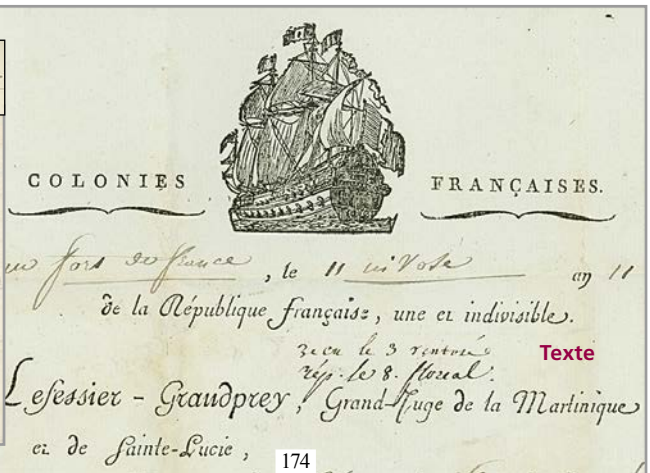 COLONIES FRANÇAISES.
au fort de france, le 11 nivose an 11
de la République française, une et indivisible.
le 3 ventose Texte
rép. le 8. floreal.
Lefessier-Grandprey, Grand-Juge de la Martinique
et de Sainte-Lucie,
174